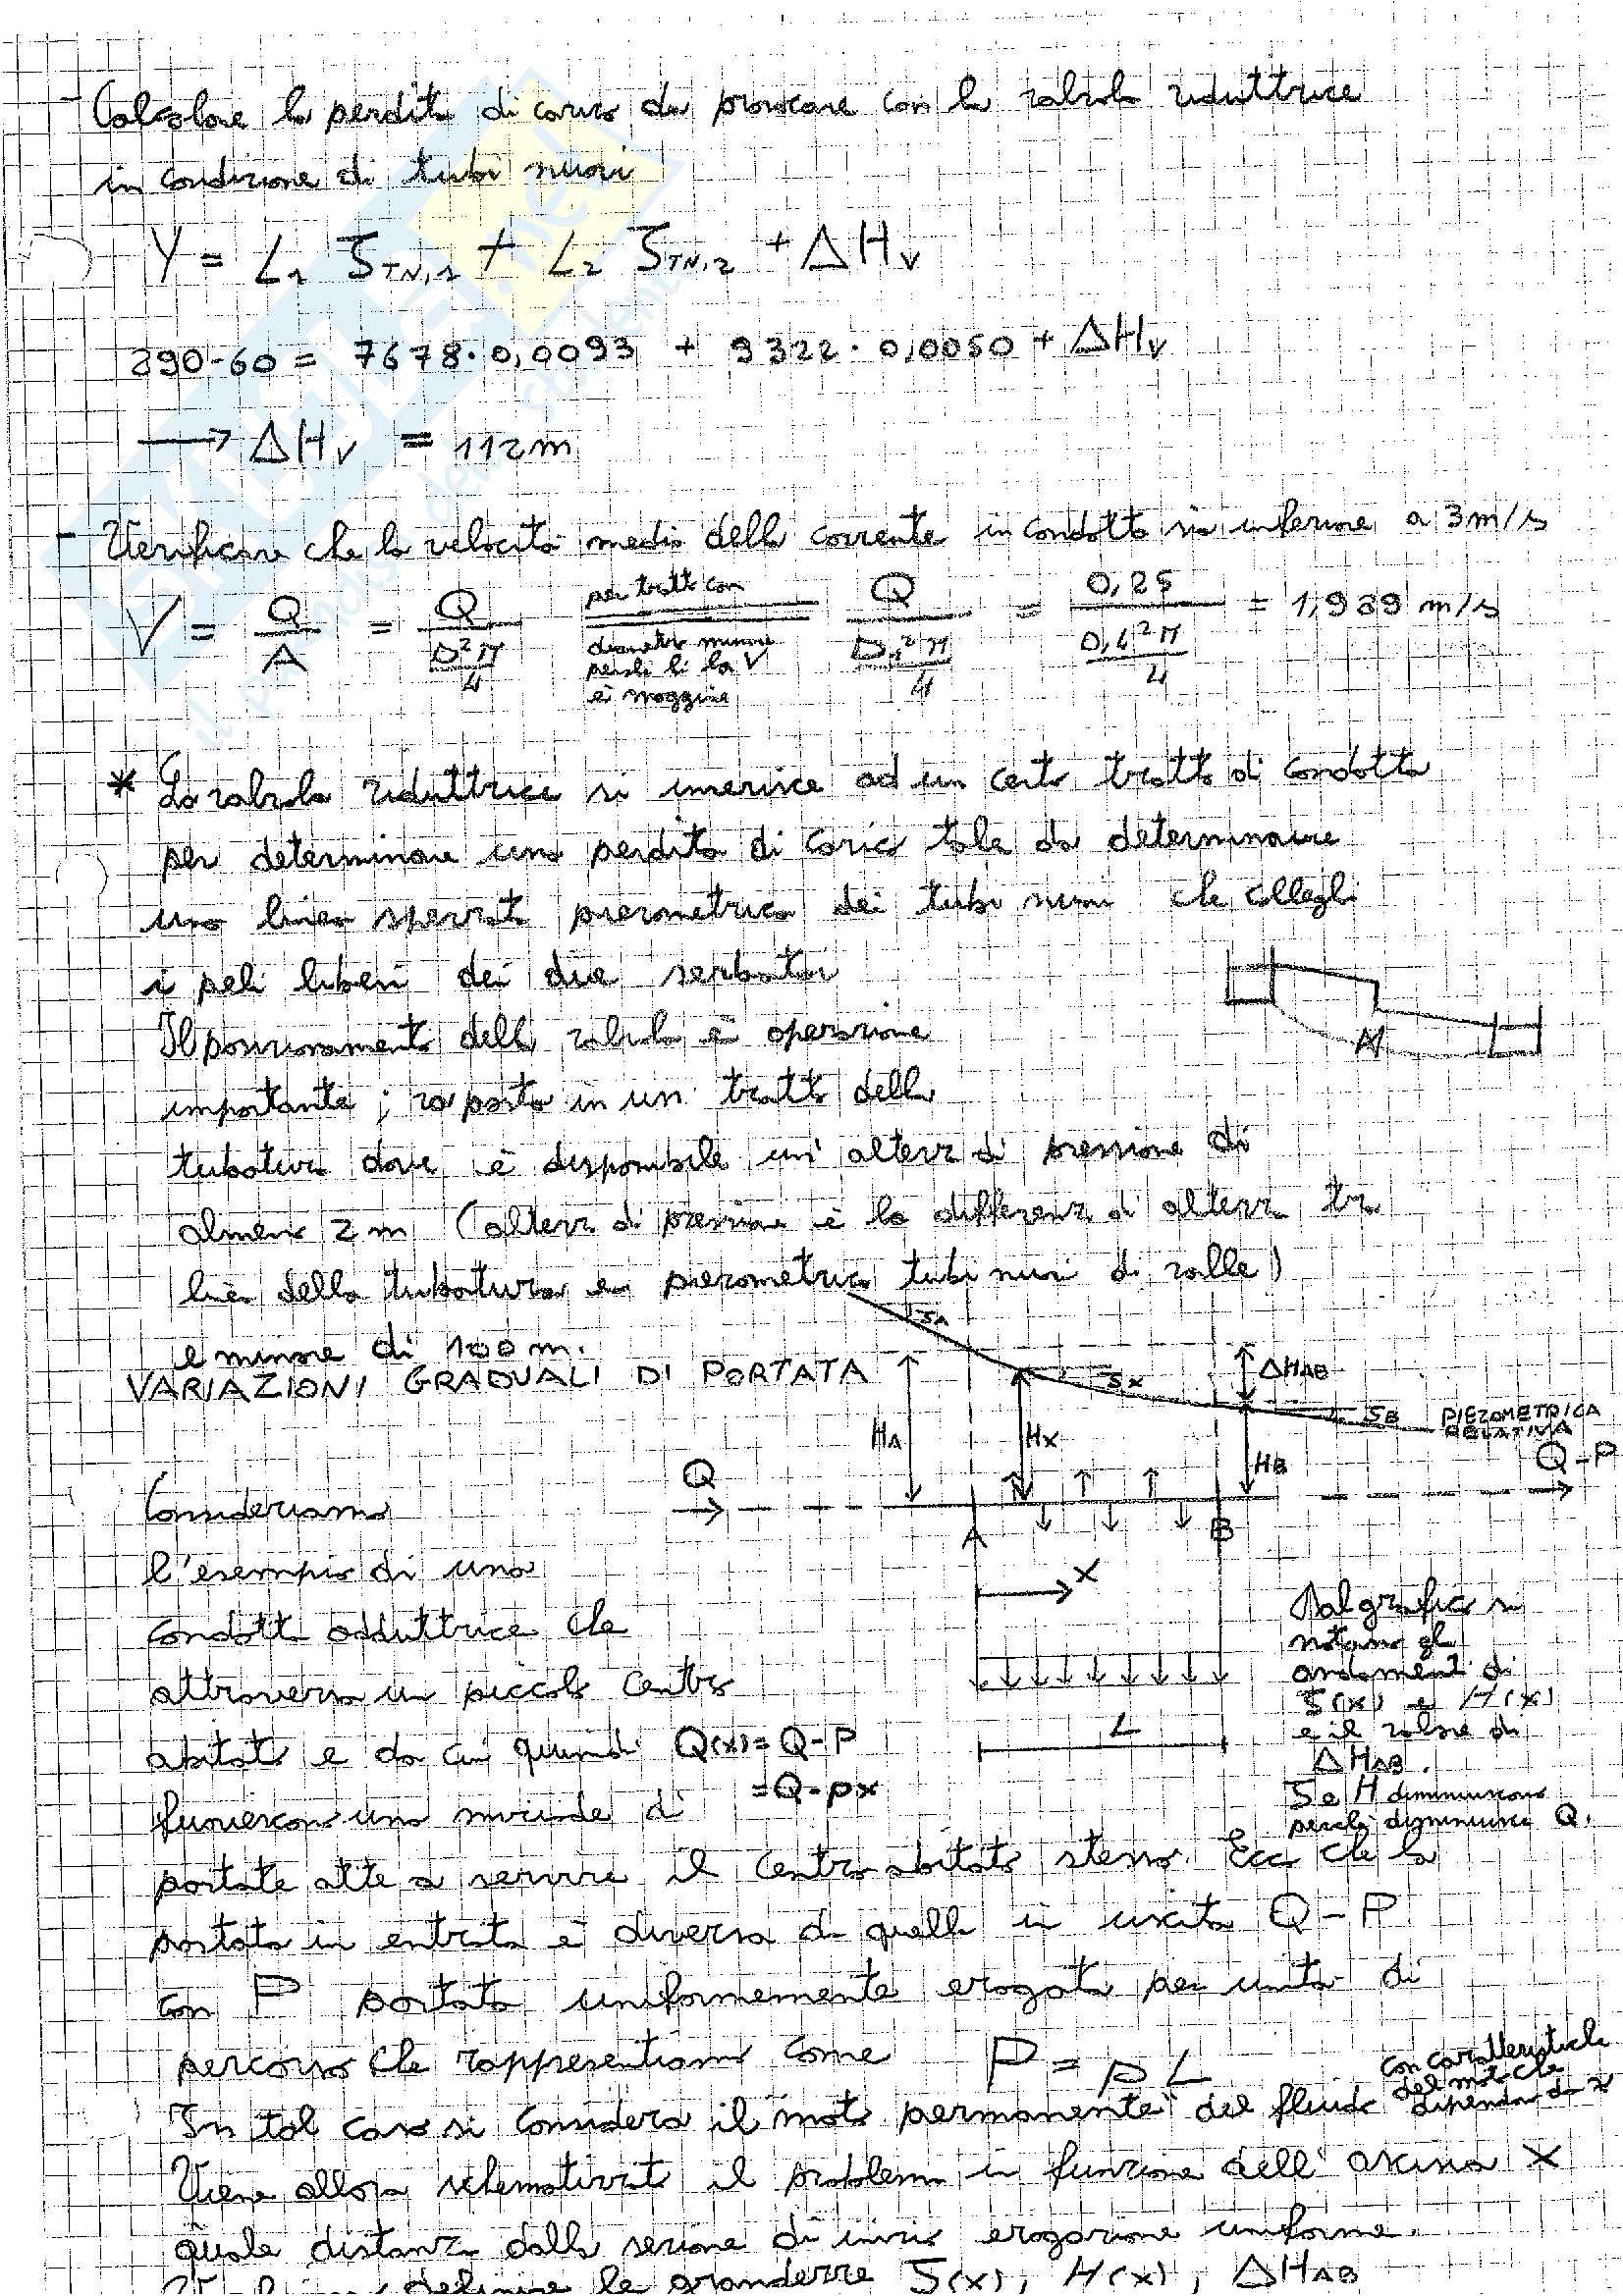 - Calcolare la perdita di carico da provocare con la valvola riduttrice
in condizione di tubi nuovi
Y = L1 J TN,1 + L2 J TN,2 + ΔHv
290-60 = 7678·0,0093 + 9322·0,0050 + ΔHv
→ ΔHv = 112m
- Verificare che la velocità media della corrente in condotta sia inferiore a 3m/s
V = Q/A = Q/(D²π/4) per tratto con diametro minore perché lì la V è maggiore Q/(D1²π/4) = 0,25/(0,4²π/4) = 1,989 m/s
* La valvola riduttrice si inserisce ad un certo tratto di condotta
per determinare una perdita di carico tale da determinare
una linea spezzata piezometrica dei tubi nuovi che colleghi
i peli liberi dei due serbatoi
Il posizionamento della valvola è operazione
importante; va posta in un tratto della
tubatura dove è disponibile un'altezza di pressione di
almeno 2m (altezza di pressione è la differenza di altezza tra
linea della tubatura e piezometrica tubi nuovi di valle)
e minore di 100m.
VARIAZIONI GRADUALI DI PORTATA
JA
Jx
ΔHAB
JB
PIEZOMETRICA
RELATIVA
HA
Hx
HB
Q
Q-P
A
B
x
L
Consideriamo
l'esempio di una
condotta adduttrice che
attraversa un piccolo centro
abitato e da cui quindi Q(x)=Q-P
=Q-px
fuoriescono una miriade di
Dal grafico si
notano gli
andamenti di
J(x) e H(x)
e il valore di
ΔHAB.
J e H diminuiscono
perché diminuisce Q.
portate atte a servire il centro abitato stesso. Ecco che la
portata in entrata è diversa da quella in uscita Q-P
con P portata uniformemente erogata per unità di
percorso che rappresentiamo come P = pL
In tal caso si considera il moto permanente del fluido con caratteristiche
del moto che
dipendono da x
Viene allora schematizzato il problema in funzione dell'ascissa x
quale distanza dalla sezione di inizio erogazione uniforme.
definire le grandezze J(x), H(x), ΔHAB